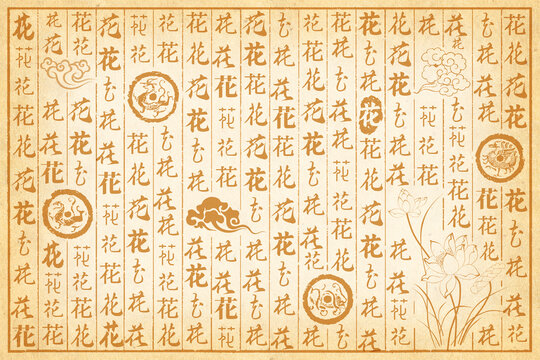 花花花花花花花花花花
花花花花花花花花花花
花花花花花花花花花
花花花花花
花花花花花花花花花花花
花花花花花花花花花花花花
花花花花花花花花花花花花
花花花花花花花花花花
花花花花花花花花花花花花
花花花花花花花花花花花花
花花花花花花花花花花
花花花花花花花花花花
花花花花花花花花花花花花
花花花花花花花花花花
花花花花花花花花花花花花
花花花花花花花花花花花
花花花花花花花花花
花花花花花花花花花花花花